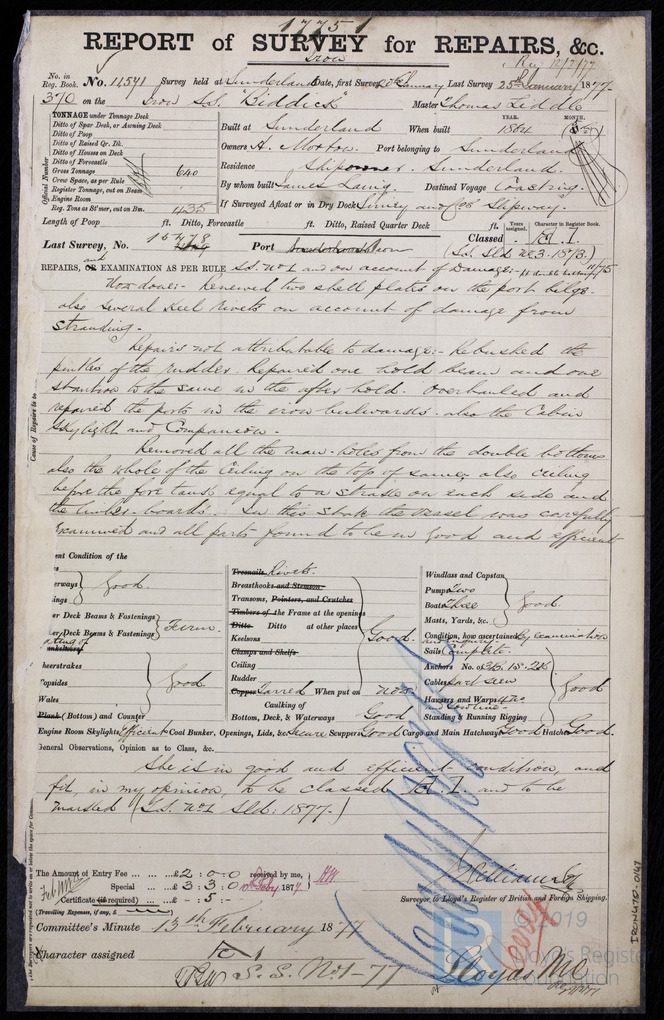 17751
REPORT of SURVEY for REPAIRS, &c.
Iron
No. in Reg. Book. No. 11541 Survey held at Sunderland Date, first Survey 20th January Last Survey 25th January 1877
370 on the Iron S.S. "Biddick" Master Thomas Liddle
TONNAGE under Tonnage Deck
Ditto of Spar Deck, or Awning Deck
Ditto of Poop
Ditto of Raised Qr. Dk.
Ditto of Houses on Deck
Ditto of Forecastle
Gross Tonnage 640
Crew Space, as per Rule
Register Tonnage, cut on Beam
Engine Room
Reg. Tons as St'mer, cut on Bm. 435
Official Number
Built at Sunderland When built YEAR. 1864 MONTH.
Owners A. Morton Port belonging to Sunderland
Residence Shipowner. Sunderland.
By whom built James Laing. Destined Voyage Coasting.
If Surveyed Afloat or in Dry Dock Survey and on Slipway.
Length of Poop ft. Ditto, Forecastle ft. Ditto, Raised Quarter Deck ft.
Years assigned. Character in Register Book.
Last Survey, No. 15478 Port Classed A.1.
(S.S. Sld. No.3. 1873.)
REPAIRS, and OR EXAMINATION AS PER RULE S.S. No 1 and on account of Damage:-
Now done:- Renewed two shell plates on the port bilge.
also several keel rivets on account of damage from
stranding.
Repairs not attributable to damage:- Rebushed the
pintles of the rudder. Repaired one hold beam and one
stantion to the same in the after hold. Overhauled and
repaired the ports in the iron bulwarks. also the Cabin
Skylight and Companion.
Removed all the man-holes from the double bottoms
also the whole of the Ceiling on the top of same, also ceiling
before the fore tank equal to a strake on each side and
the limber boards. In this state the vessel was carefully
Examined and all parts found to be in good and efficient
Cause of Repairs is to
ent Condition of the
erways Good
ings
er Deck Beams & Fastenings
er Deck Beams & Fastenings Firm.
heerstrakes
opsides Good.
Wales
Plank (Bottom) and Counter
Treenails Rivets.
Breasthooks and Stemson
Transoms, Pointers, and Crutches
Timbers of the Frame at the openings
Ditto Ditto at other places Good.
Keelsons
Clamps and Shelfs
Ceiling
Rudder
Copper Tarred When put on now
Caulking of
Bottom, Deck, & Waterways Good
Windlass and Capstan
Pumps Two
Boats Three Good.
Masts, Yards, &c.
Condition, how ascertained By examination
Sails Complete.
Anchors No. of
Cables
Hawsers and Warps Good
Standing & Running Rigging
Engine Room Skylights Efficient Coal Bunker, Openings, Lids, &c. Secure Scuppers Good Cargo and Main Hatchways Good Hatches Good.
General Observations, Opinion as to Class, &c.
She is in good and efficient condition, and
fit, in my opinion, to be classed A.1. and to be
marked (S.S. No 1 Sld: 1877.)
The Amount of Entry Fee £2:0:0 received by me,
Special £3:3:0 187
Certificate (if required) £-:5:-
(Travelling Expenses, if any, £ )
Surveyor to Lloyd's Register of British and Foreign Shipping.
Committee's Minute 13th February 1877
Character assigned A 1
S.S. No 1-77
Lloyds MC
IRON470-0147
© 2019
Lloyd's Register
Foundation